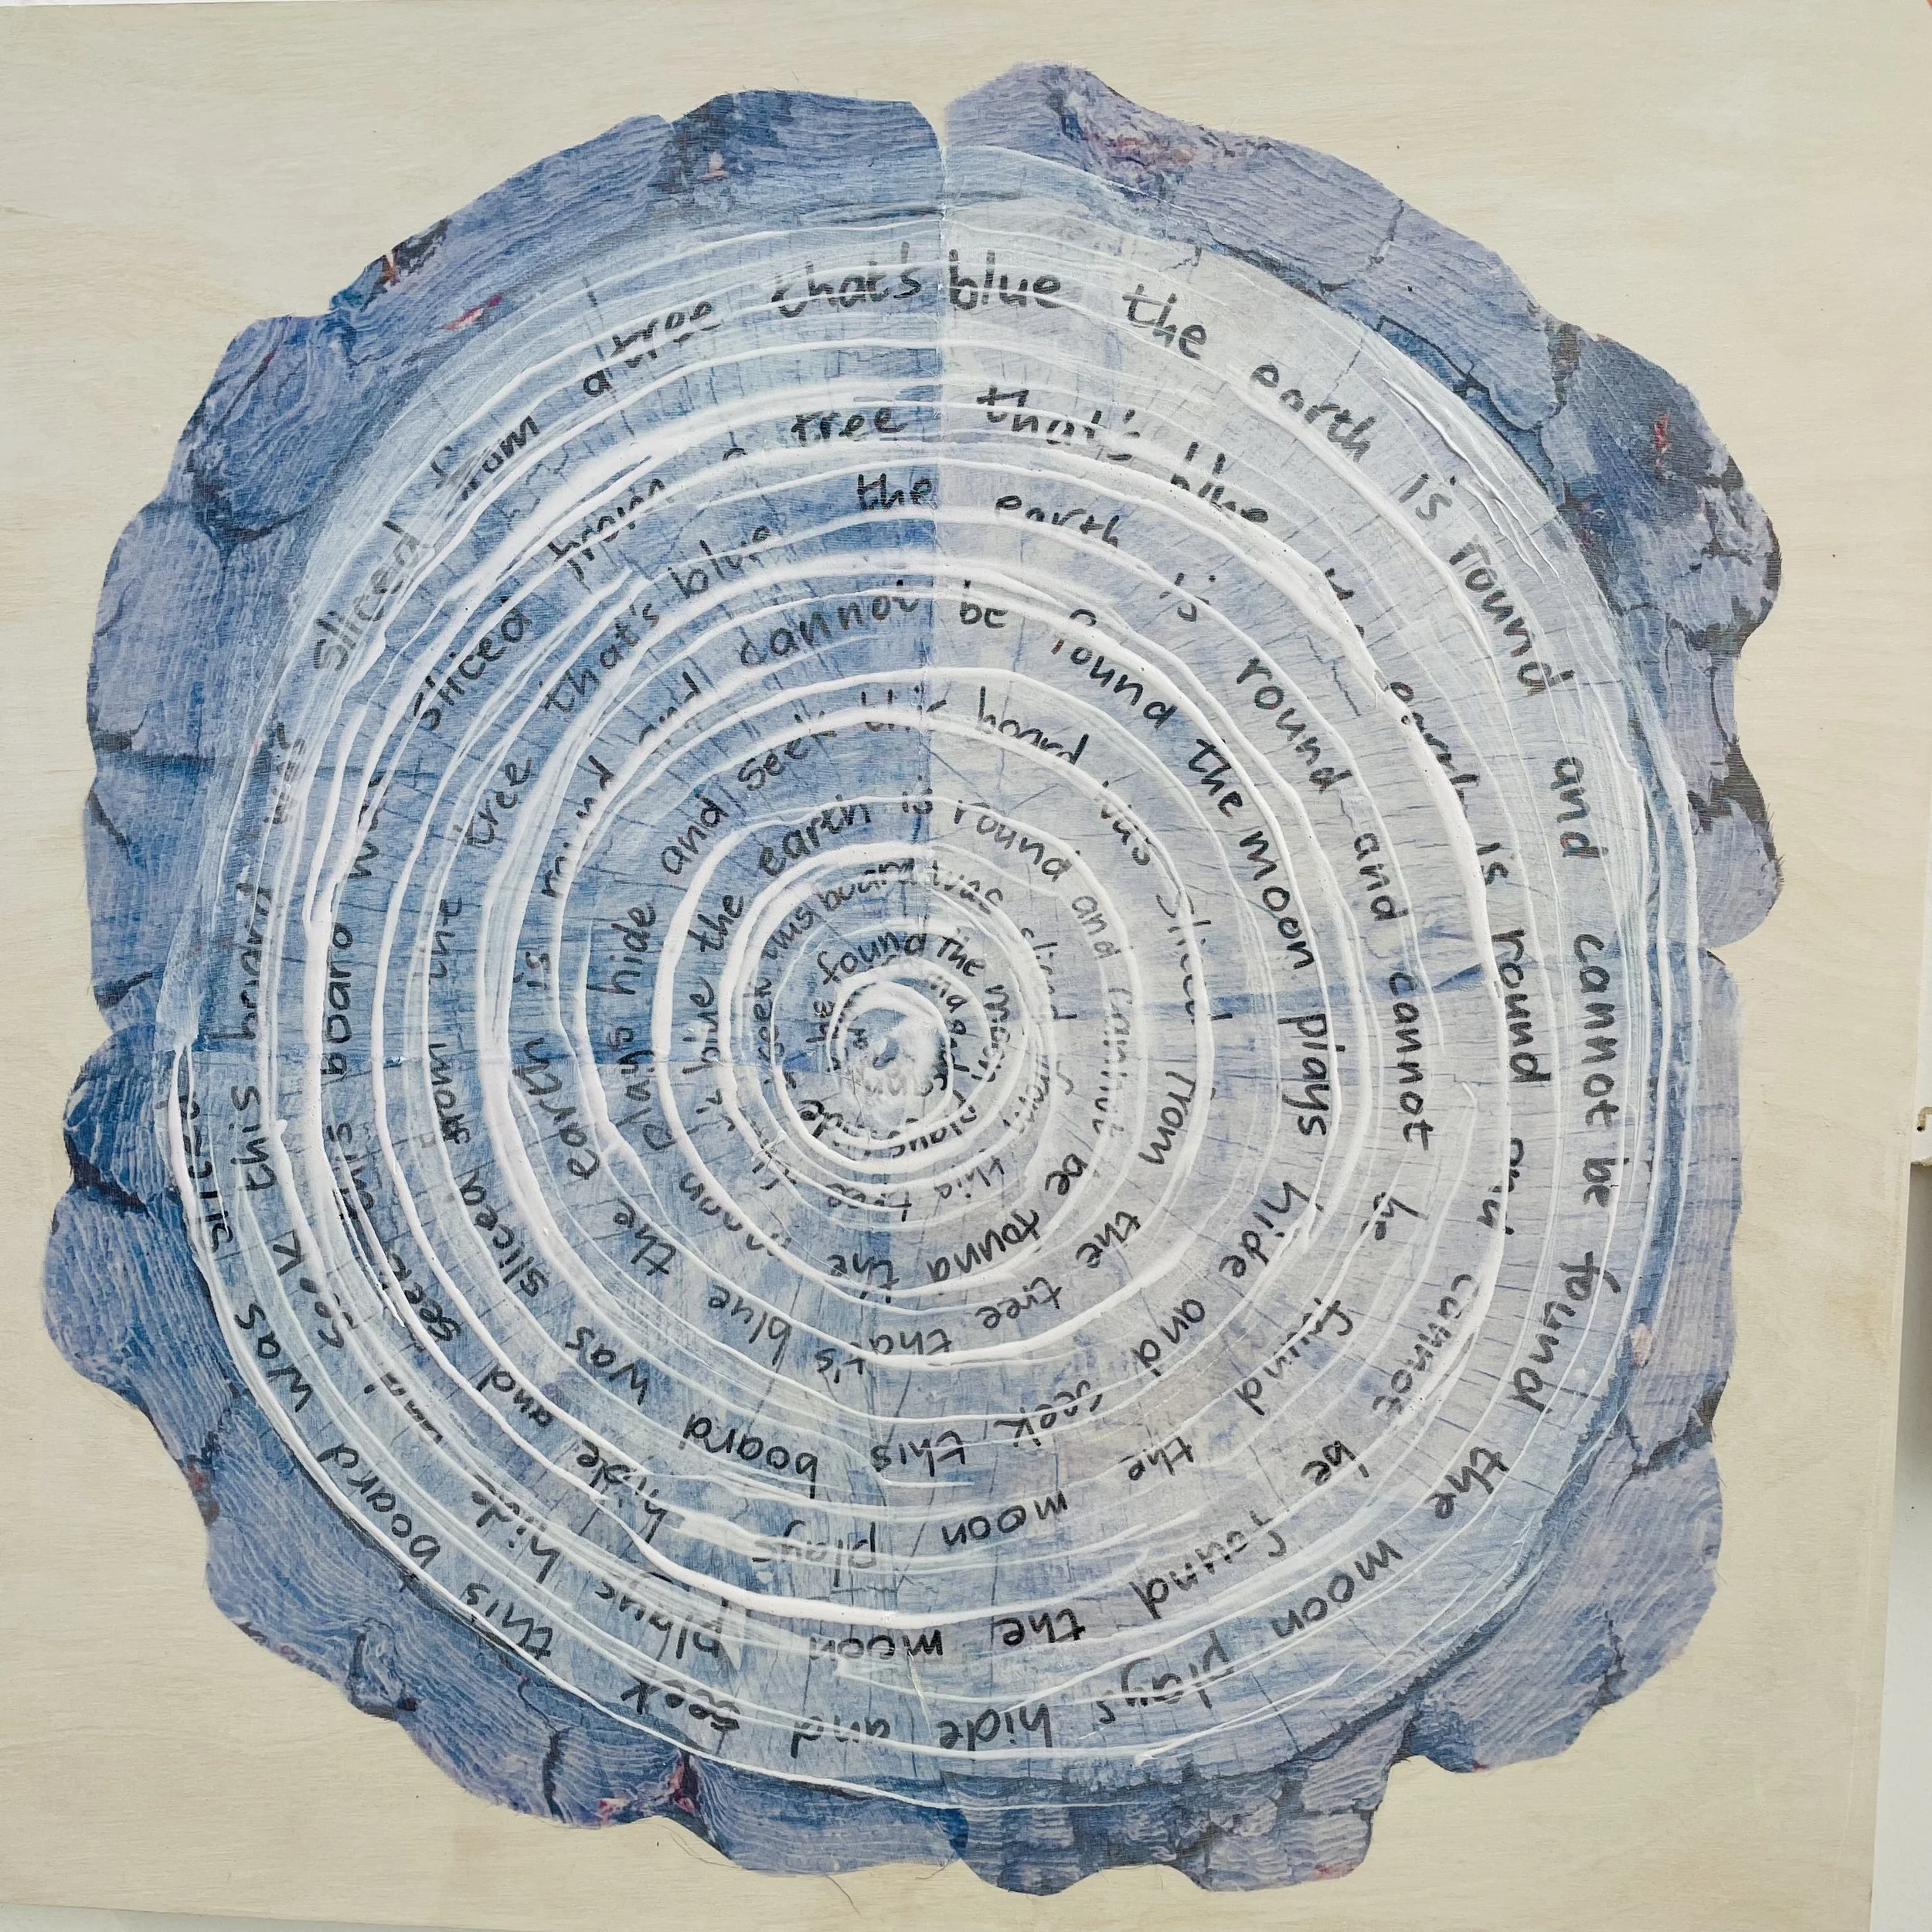 be found the moon plays hide
seek this board was sliced from this tree
that's blue the earth is round and cannot be found the
moon plays hide and seek this board was sliced from the tree that's blue the
earth is round and cannot be found the moon plays hide and seek this board was
sliced from the tree that's blue the earth is round and cannot be found the moon plays hide and
seek this board was sliced from a tree that's blue the earth is round and cannot be found the moon plays hide and
seek this board was sliced from a tree that's blue the earth is round and cannot be found the moon plays hide and seek this board was sliced